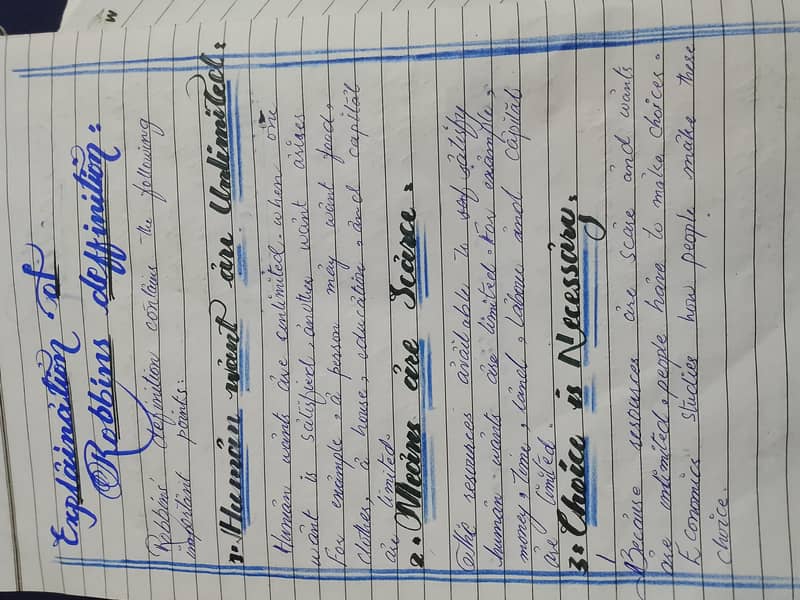 Explaination of
Robbins deffinition:
Robbins definition contains the following
important points:
1. Human want are Unlimited:
Human wants are unlimited. when one
want is satisfied, another want arises
For example, a person may want food,
clothes, a house, education, and capital
are limited.
2. Means are Scarce.
The resources available to satisfy
human wants are limited. For example,
money, time, land, labour and capital
are limited.
3. Choice is Necessary.
Because resources are scare and wants
are unlimited, people have to make choices.
Economics studies how people make these
choice.
M